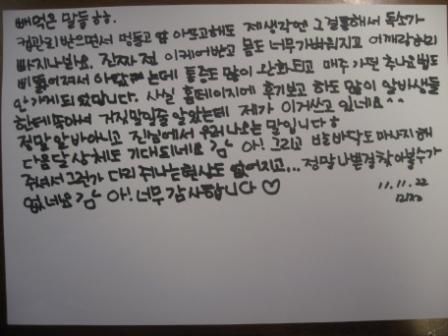 빼먹은 말들ㅎㅎ.
컴관리받으면서 멍들고 막 아프고해도 제생각엔 그걸통해서 독소가
빠지나봐요. 진짜 전 이케어받고 몸도 너무가벼워지고 어깨랑허리
삐뚤어져서 아팠는데 통증도 많이 완화되고 매주 가던 추나요법도
안가게되었답니다. 사실 홈페이지에 후기보고 하도 많이 알바생들
한테 속아서 거짓말인줄 알았는데 제가 이거쓰고 있네요^^
정말 알바아니고 진심에서 우러나오는 말입니다ㅎ
다음달 상체도 기대되네요 감 아! 그리고 발바닥도 마사지해
주셔서 그런가 다리 쥐나는현상도 없어지고... 정말나쁜걸 찾아볼수가
없네요 감 아! 너무 감사합니다♡
11.11.22